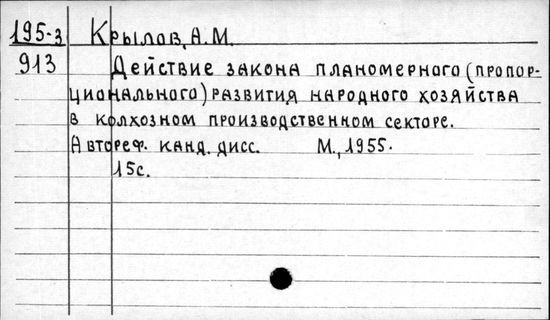 195-3 Крылов, А.М.
913 Действие закона планомерного (пропор-
ционального) развития народного хозяйства
в колхозном производственном секторе.
Автореф. канд. дисс. М., 1955.
15с.